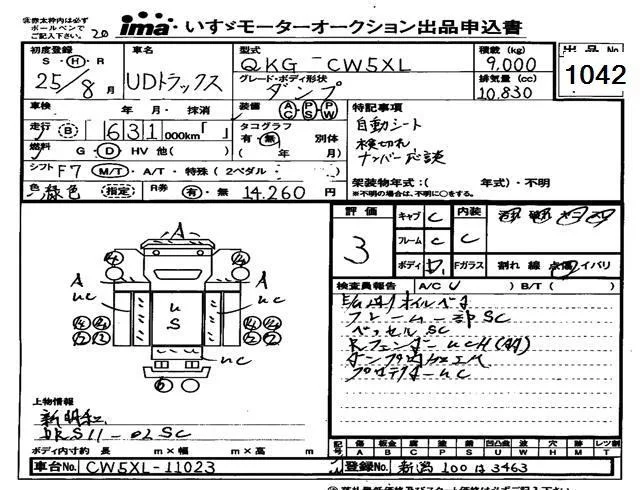 黒赤枠内は必ず
ボールペンで
ご記入下さい。
20
ima いすゞモーターオークション出品申込書
初度登録
S・H・R
25/8月
車名
UDトラックス
型式
QKG-CW5XL
グレード・ボディ形状
ダンプ
積載(kg)
9,000
排気量(cc)
10,830
出品No
1042
車検 年 月・抹消
装備 AC・PS・PW
走行 B 631 000km「 」
タコグラフ
有・無 別体
( 年 月)
燃料 G・D・HV 他( )
シフト F7 M/T・A/T・特殊(2ペダル
色 緑色 指定
R券 有・無 14,260 円
特記事項
自動シート
検切れ
ナンバー応談
架装物年式:( 年式)・不明
※不明の場合は、不明に○をする。
評価
3
キャブ C
フレーム C
ボディ D
内装 C
Fガラス 割れ 線 点傷 イバリ
検査員報告 A/C( ) B/T( )
フレーム一部SC
ベッセルSC
プロテクターUC
A
A
A
UC
UC
U
S
UC
上物情報
新明和
DRS11-02SC
ボディ内寸約 長 m×幅 m×高 m
記号
傷 板金 腐 塗 錆 凹凸曲 波 穴 跡 レツ割
A B C P S U W H M T
車台No. CW5XL-11023
登録No. 新潟 100 は 3463